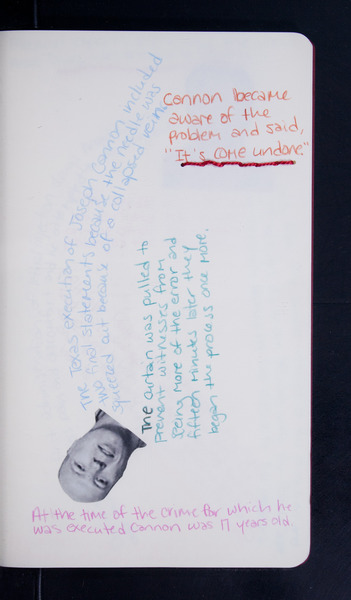 The Texas execution of Joseph Cannon included
two final statements because the needle was
squeezed out because of a collapsed vein.
Cannon became
aware of the
problem and said,
"It's come undone."
The curtain was pulled to
prevent witnesses from
seeing more of the error and
fifteen minutes later they
began the process once more.
At the time of the crime for which he
was executed Cannon was 17 years old.